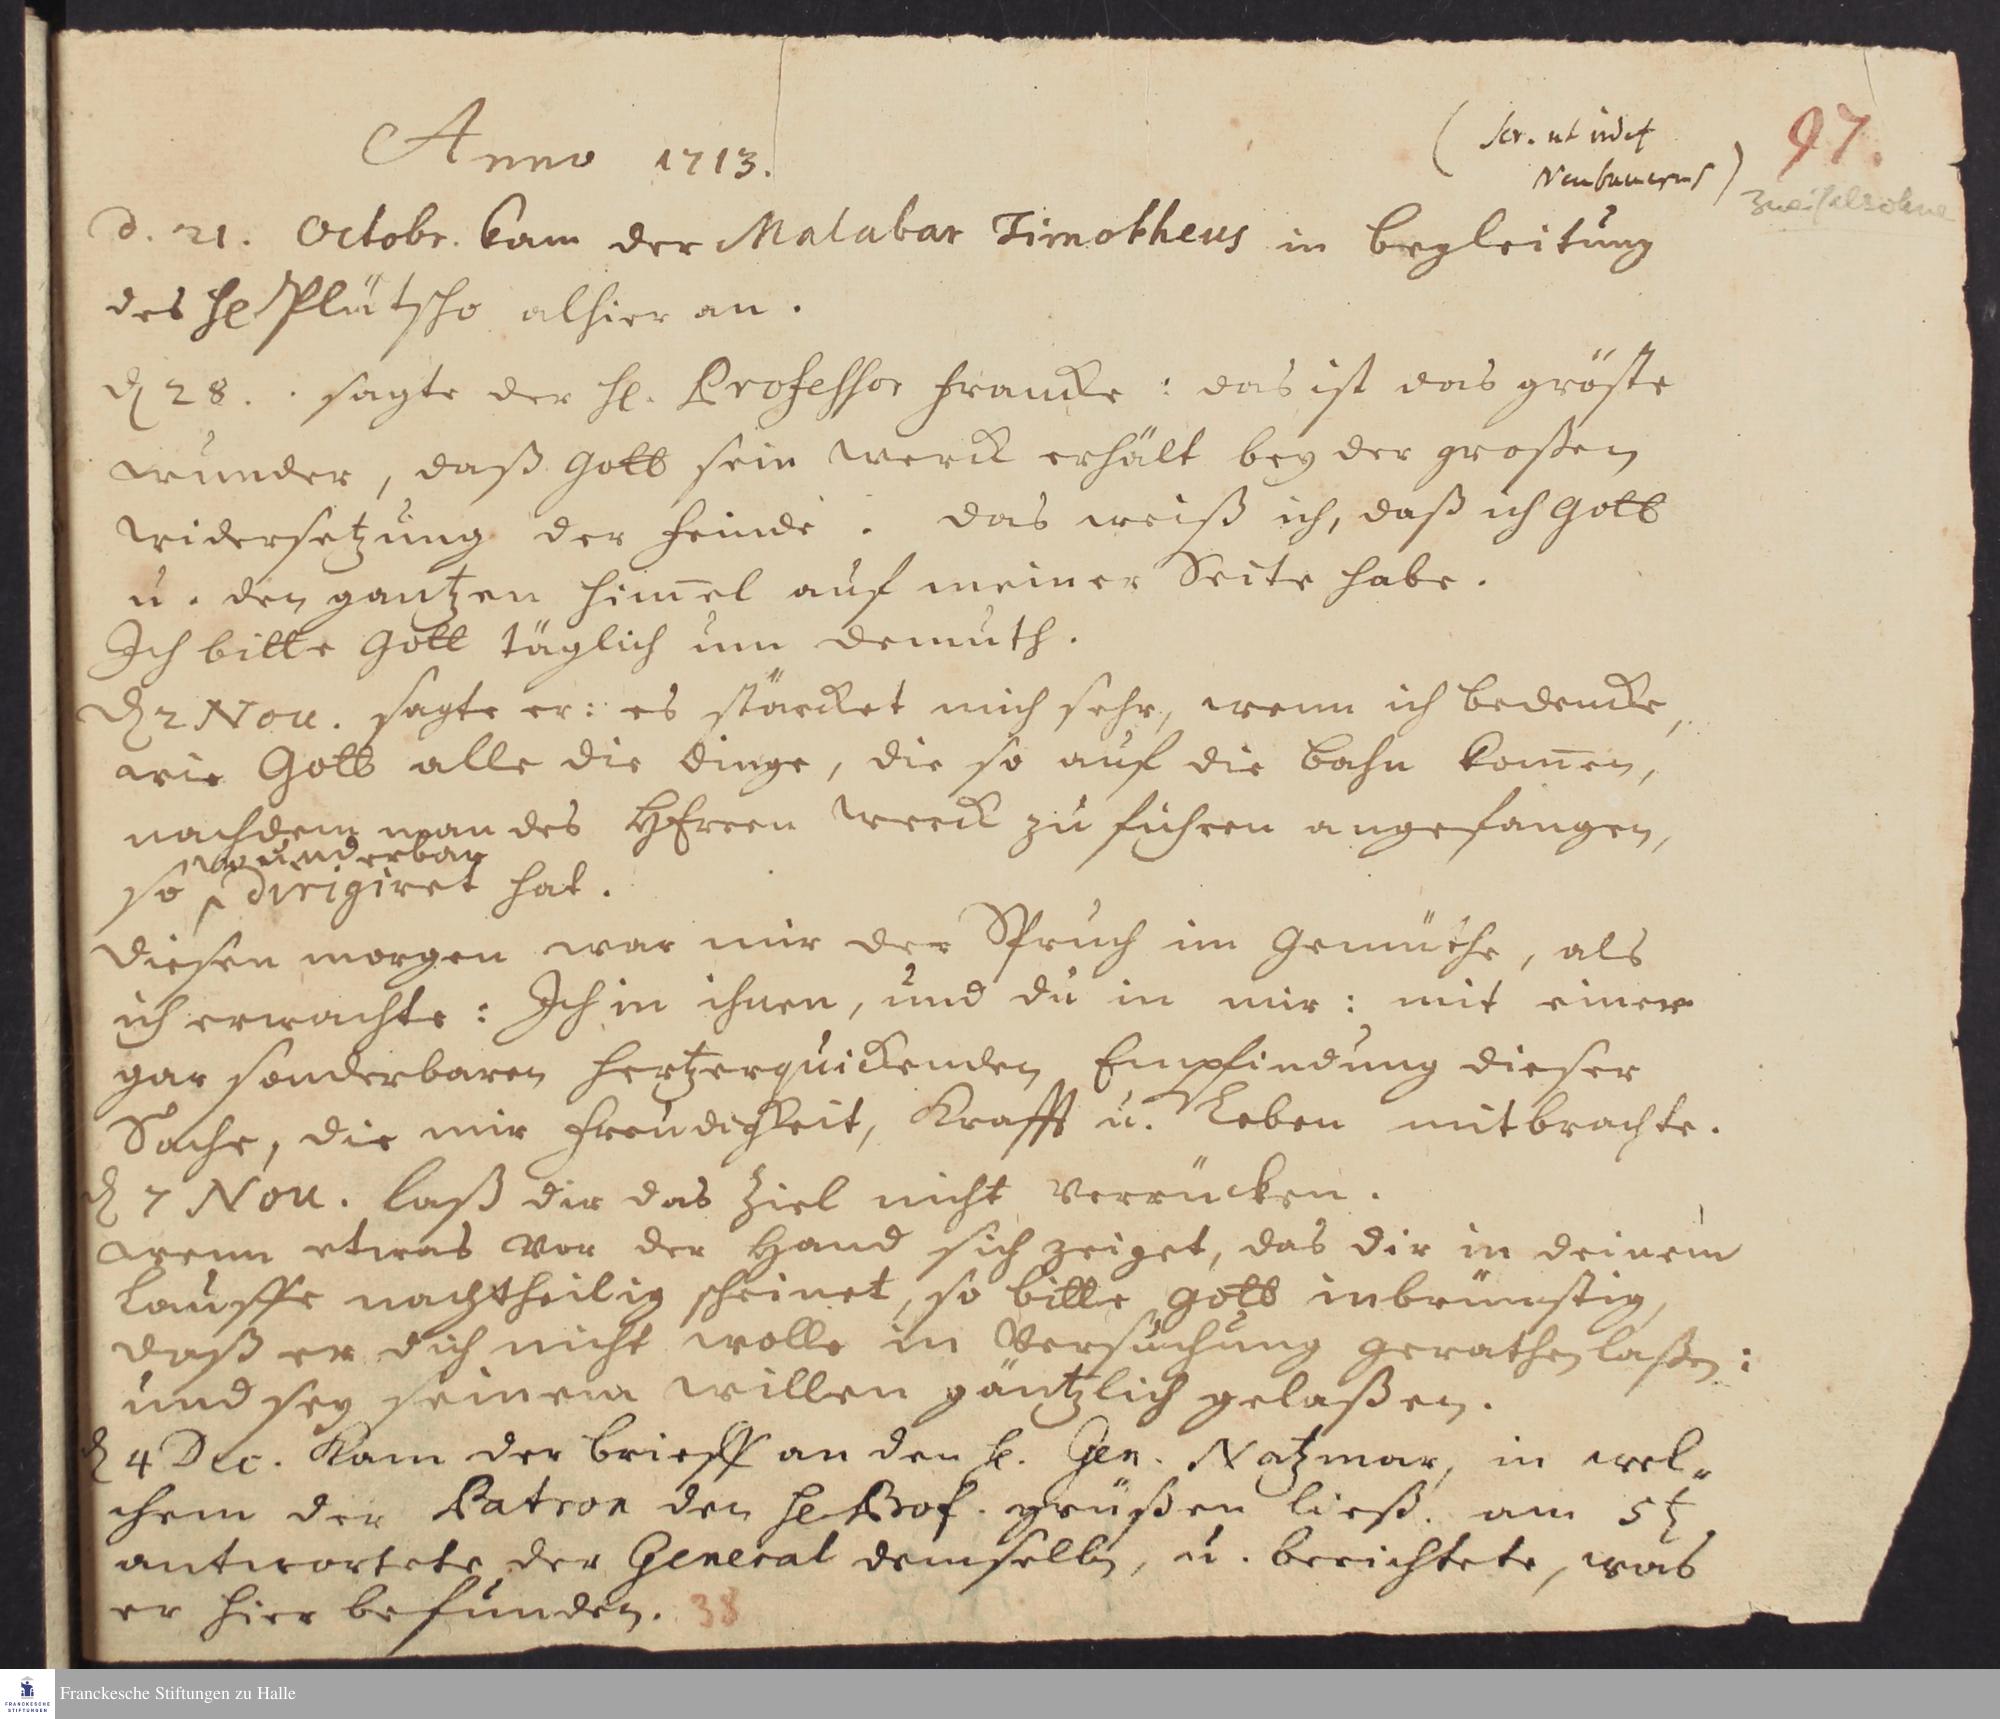 Anno 1713.
(scr. ut videt
Neubauerus)
97.
zweifelsohne
d. 21. Octobr. kam der Malabar Timotheus in begleitung
des H Plütscho alhier an.
d 28. sagte der H. Professor Francke: das ist das gröste
wunder, daß Gott sein werck erhält bey der großen
widersetzung der feinde. das weiß ich, daß ich Gott
u. den gantzen him̄el auf meiner Seite habe.
Ich bitte Gott täglich um demuth.
d 2 Nov. sagte er: es stärcket mich sehr, wenn ich bedencke,
wie Gott alle die dinge, die so auf die bahn kom̄en,
nachdem man des HErren werck zu führen angefangen,
wunderbar
so dirigiret hat.
diesen morgen war mir der Spruch im Gemüthe, als
ich erwachte: Ich in ihnen, und du in mir: mit einer
gar sonderbaren hertzerquickenden Empfindung dieser
Sache, die mir freudigkeit, Krafft u. Leben mitbrachte.
d 7 Nov. laß dir das Ziel nicht verrücken.
wenn etwas vor der Hand sich zeiget, das dir in deinem
lauffe nachtheilig scheinet, so bitte Gott inbrünstig,
daß er dich nicht wolle in Versuchung gerathen laßen:
und sey seinem willen gäntzlich gelaßen.
d 4 Dec. Kam der brieff an den H. Gen. Natzmar, in wel-
chem der Patron den H Prof. grüßen ließ. am 5t
antwortete der General demselben, u. berichtete, was
er hier befunden. 38
Franckesche Stiftungen zu Halle
FRANCKESCHE
STIFTUNGEN